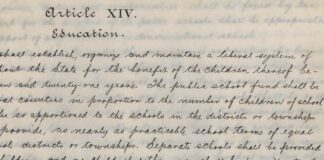 Article XIV.
Education.
shall establish, organize and maintain a liberal system of
out the State for the benefit of the children thereof be-
and twenty-one years. The public school fund shall be
al counties in proportion to the number of children of school
be so apportioned to the schools in the districts or townships
provide, as nearly as practicable school terms of equal
ol districts or townships. Separate schools shall be provided